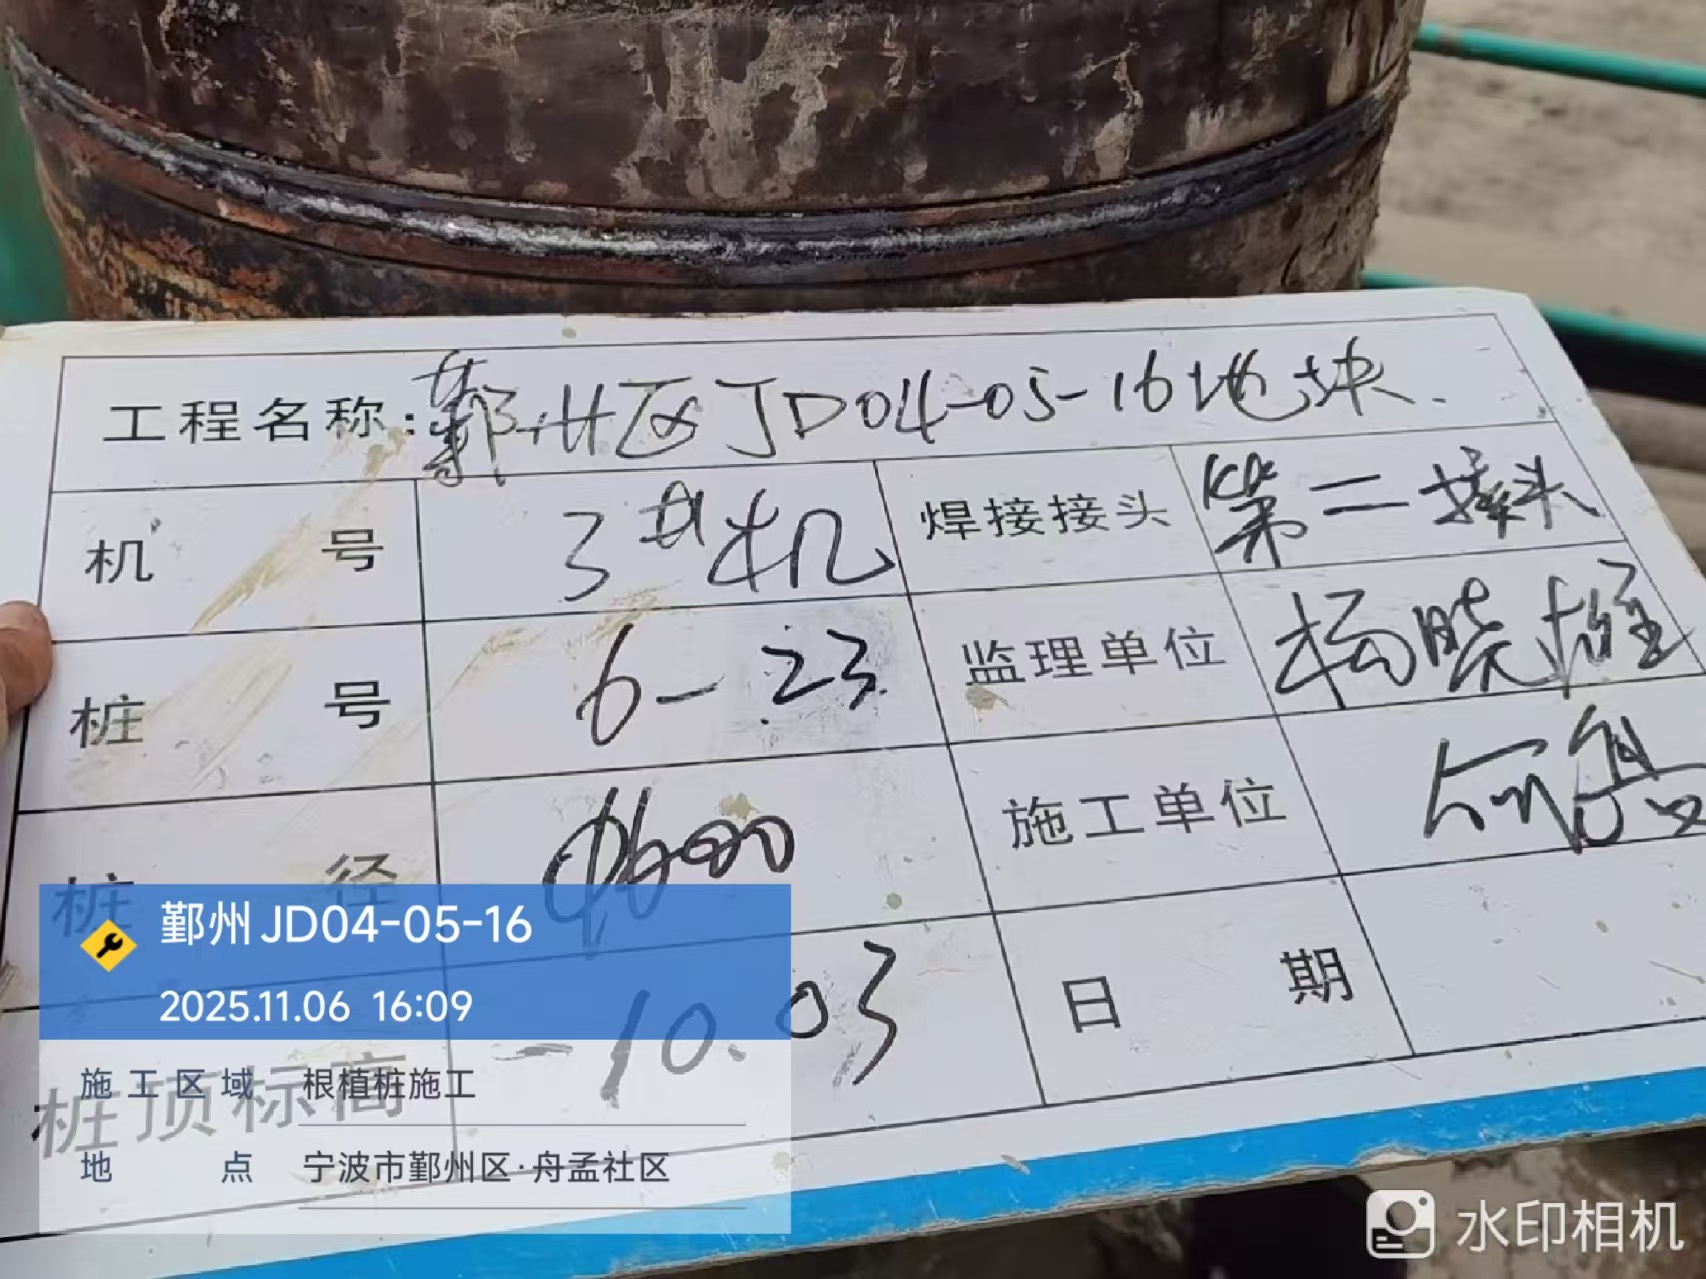 工程名称:鄞州区JD04-05-16地块.
机 号 3#机 焊接接头 第二接头
桩 号 6-23 监理单位 杨晓雄
桩 径 Φ600 施工单位
桩顶标高 -10.03 日 期
鄞州JD04-05-16
2025.11.06 16:09
施工区域 根植桩施工
地 点 宁波市鄞州区·舟孟社区
水印相机